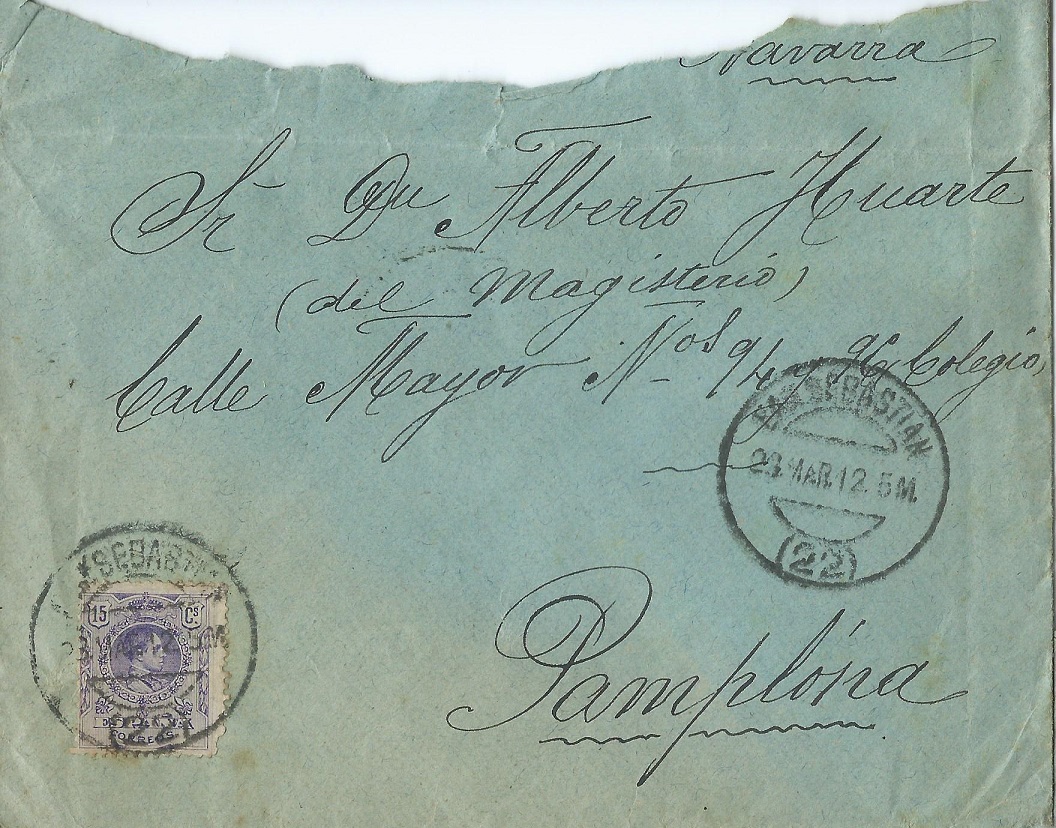 Navarra
Sr Dn Alberto Huarte
(del Magisterio)
Calle Mayor Nos 9/4 Colegio,
SAN SEBASTIAN
23.MAR.12. 5M.
(22)
Pamplona
SEBASTIAN
15 Cs
CORREOS